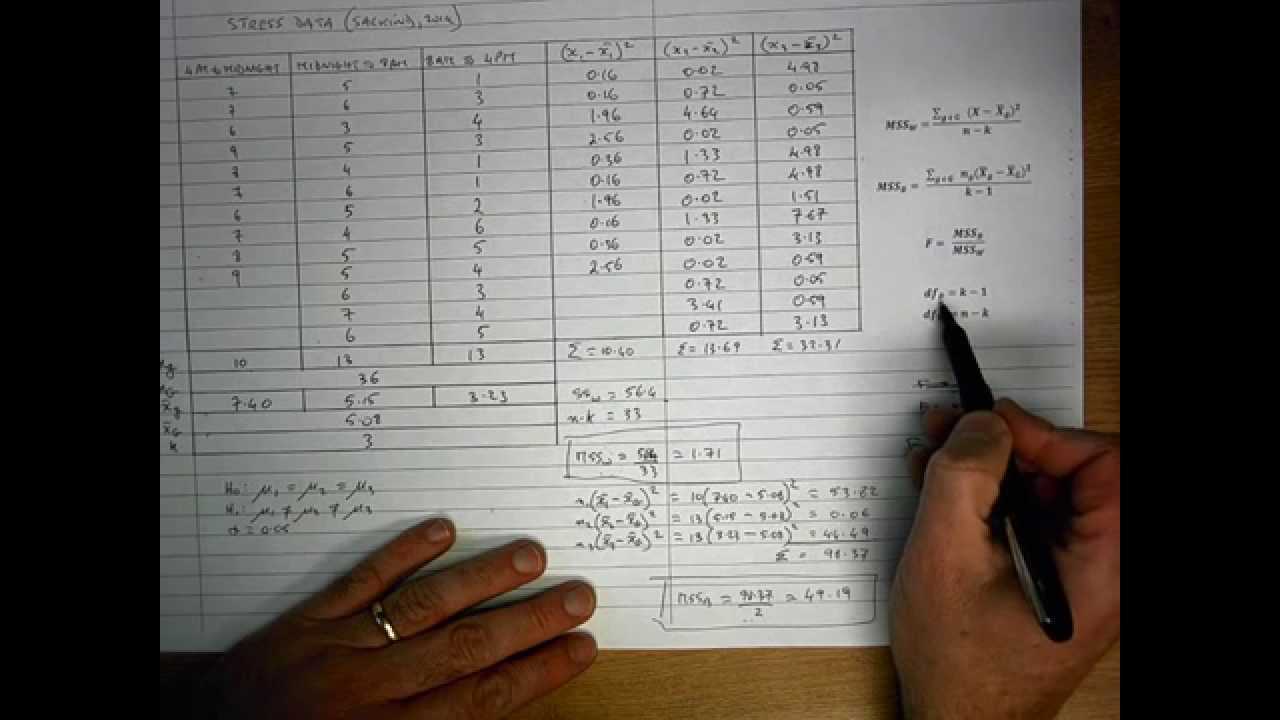 STRESS DATA (SALKIND, 2010)
4PM TO MIDNIGHT MIDNIGHT TO 8AM 8AM TO 4PM (x₁-x̄₁)² (x₂-x̄₂)² (x₃-x̄₃)²
7 5 1 0.16 0.02 4.98
7 6 3 0.16 0.72 0.05
6 3 4 1.96 4.64 0.59
9 5 3 2.56 0.02 0.05
8 4 1 0.36 1.33 4.98
7 6 1 0.16 0.72 4.98
6 5 2 1.96 0.02 1.51
7 4 6 0.16 1.33 7.67
8 5 5 0.36 0.02 3.13
9 5 4 2.56 0.02 0.59
6 3 0.72 0.05
7 4 3.41 0.59
6 5 0.72 3.13
10 13 13 Σ = 10.40 Σ = 13.69 Σ = 32.31
36
x̄g 7.40 5.15 3.23 SSw = 56.4
x̄G 5.08 n-k = 33
k 3
MSSw = 56.4/33 = 1.71
H₀: μ₁ = μ₂ = μ₃
H₁: μ₁ ≠ μ₂ ≠ μ₃
α = 0.05
n₁(x̄₁-x̄G)² = 10(7.40-5.08)² = 53.82
n₂(x̄₂-x̄G)² = 13(5.15-5.08)² = 0.06
n₃(x̄₃-x̄G)² = 13(3.23-5.08)² = 44.49
Σ = 98.37
MSSB = 98.37/2 = 49.19
MSSw = Σg∈G (X - X̄g)² / n-k
MSSB = Σg∈G ng(X̄g - X̄G)² / k-1
F = MSSB/MSSW
dfB = k-1
= n-k